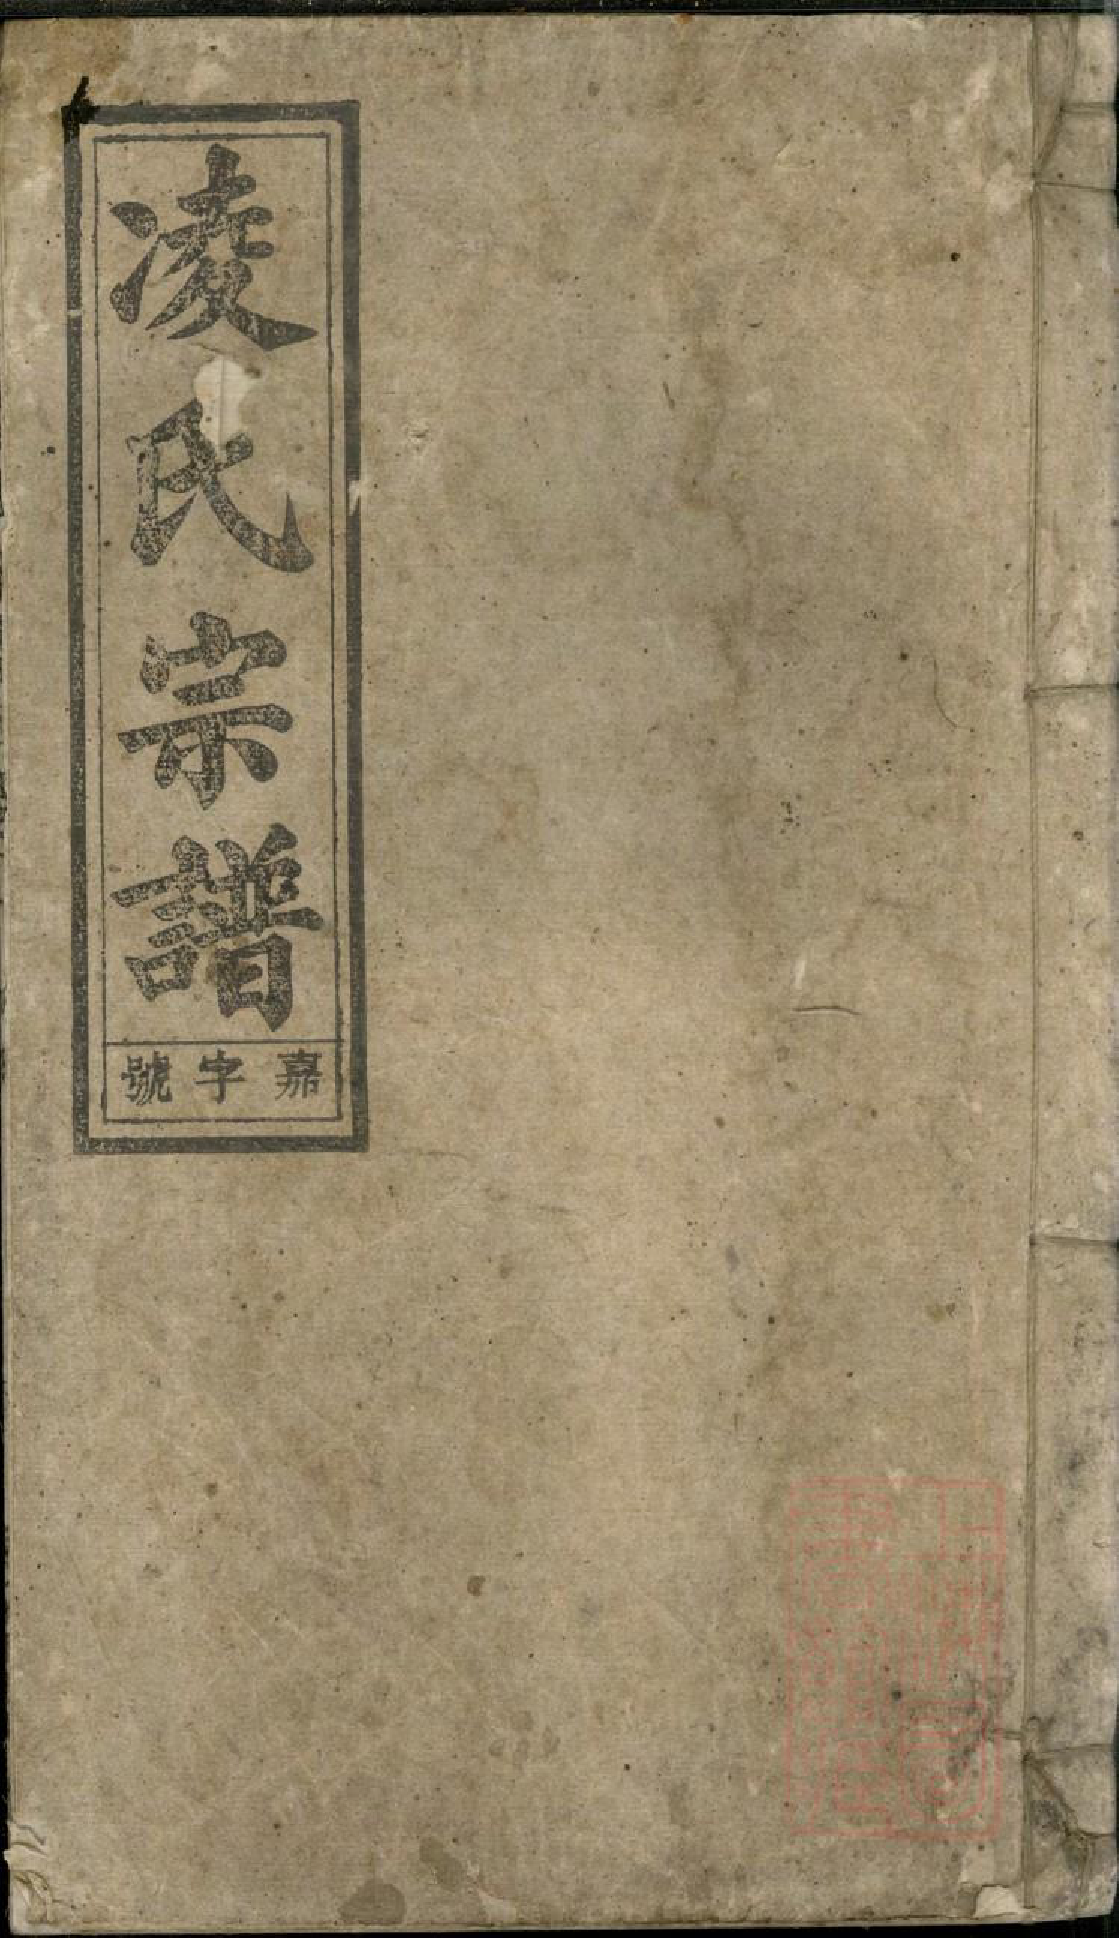 凌氏宗譜
嘉字號